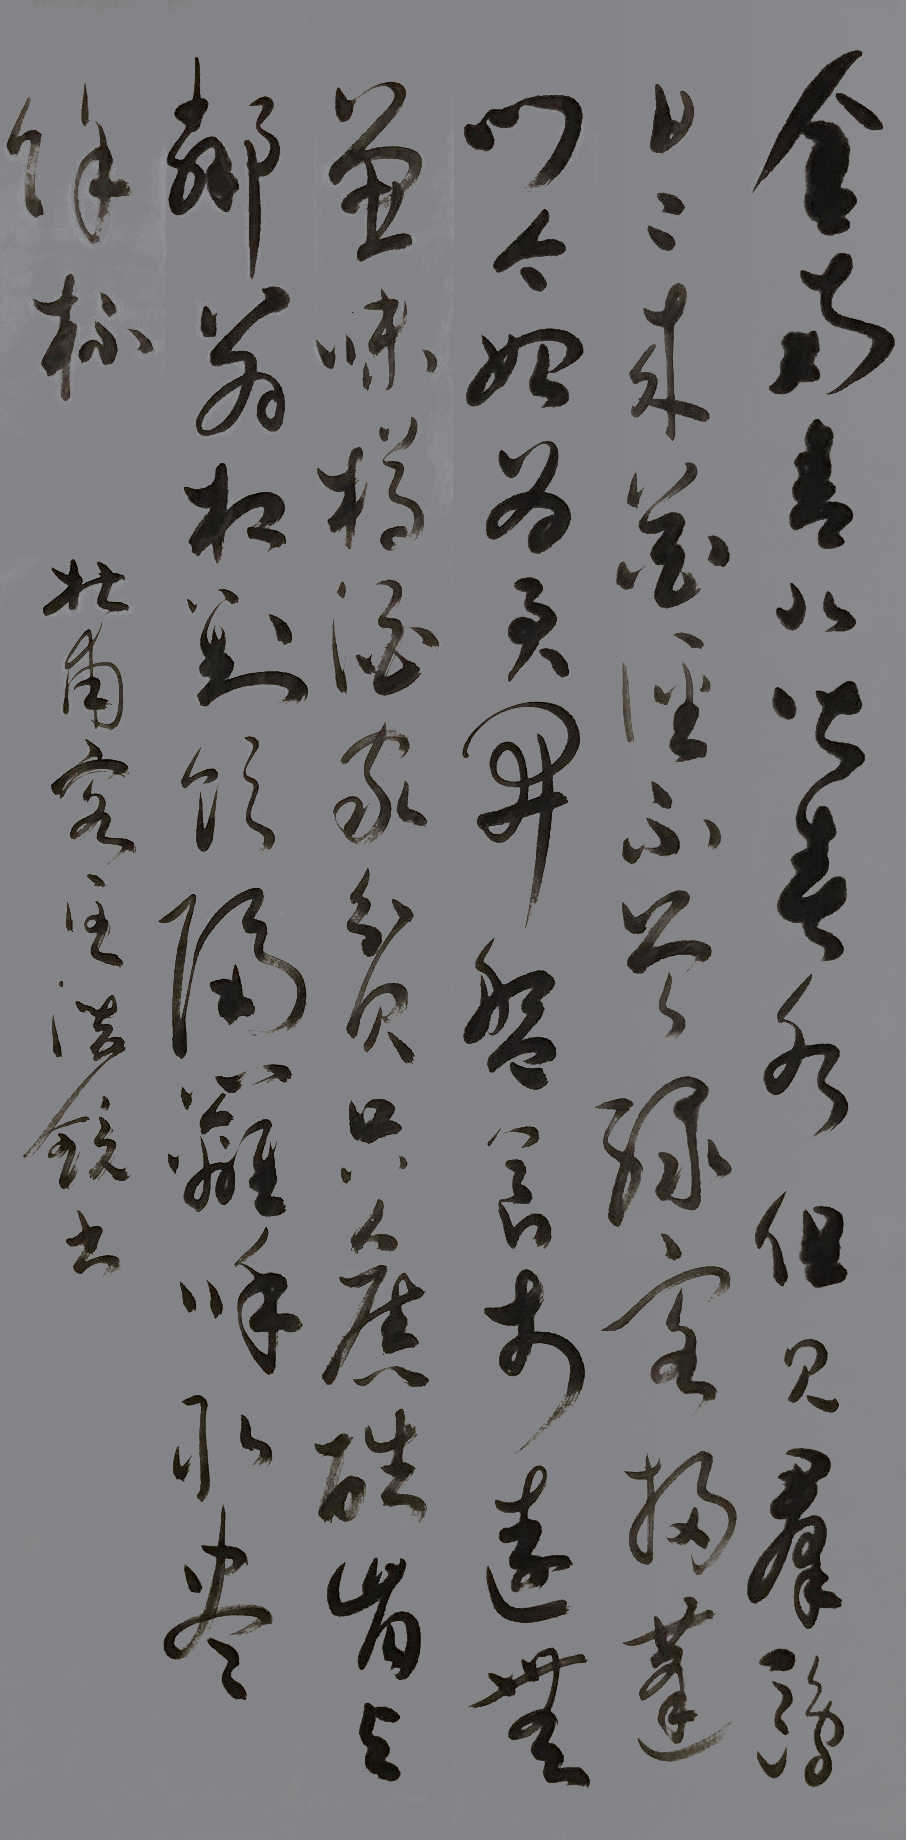 舍南舍北皆春水但見羣鷗
日日來花徑不曾緣客掃蓬
門今始為君開盤飧市遠無
兼味樽酒家貧只舊醅肯與
鄰翁相對飲隔籬呼取盡
餘杯
杜甫客至浩鏡書